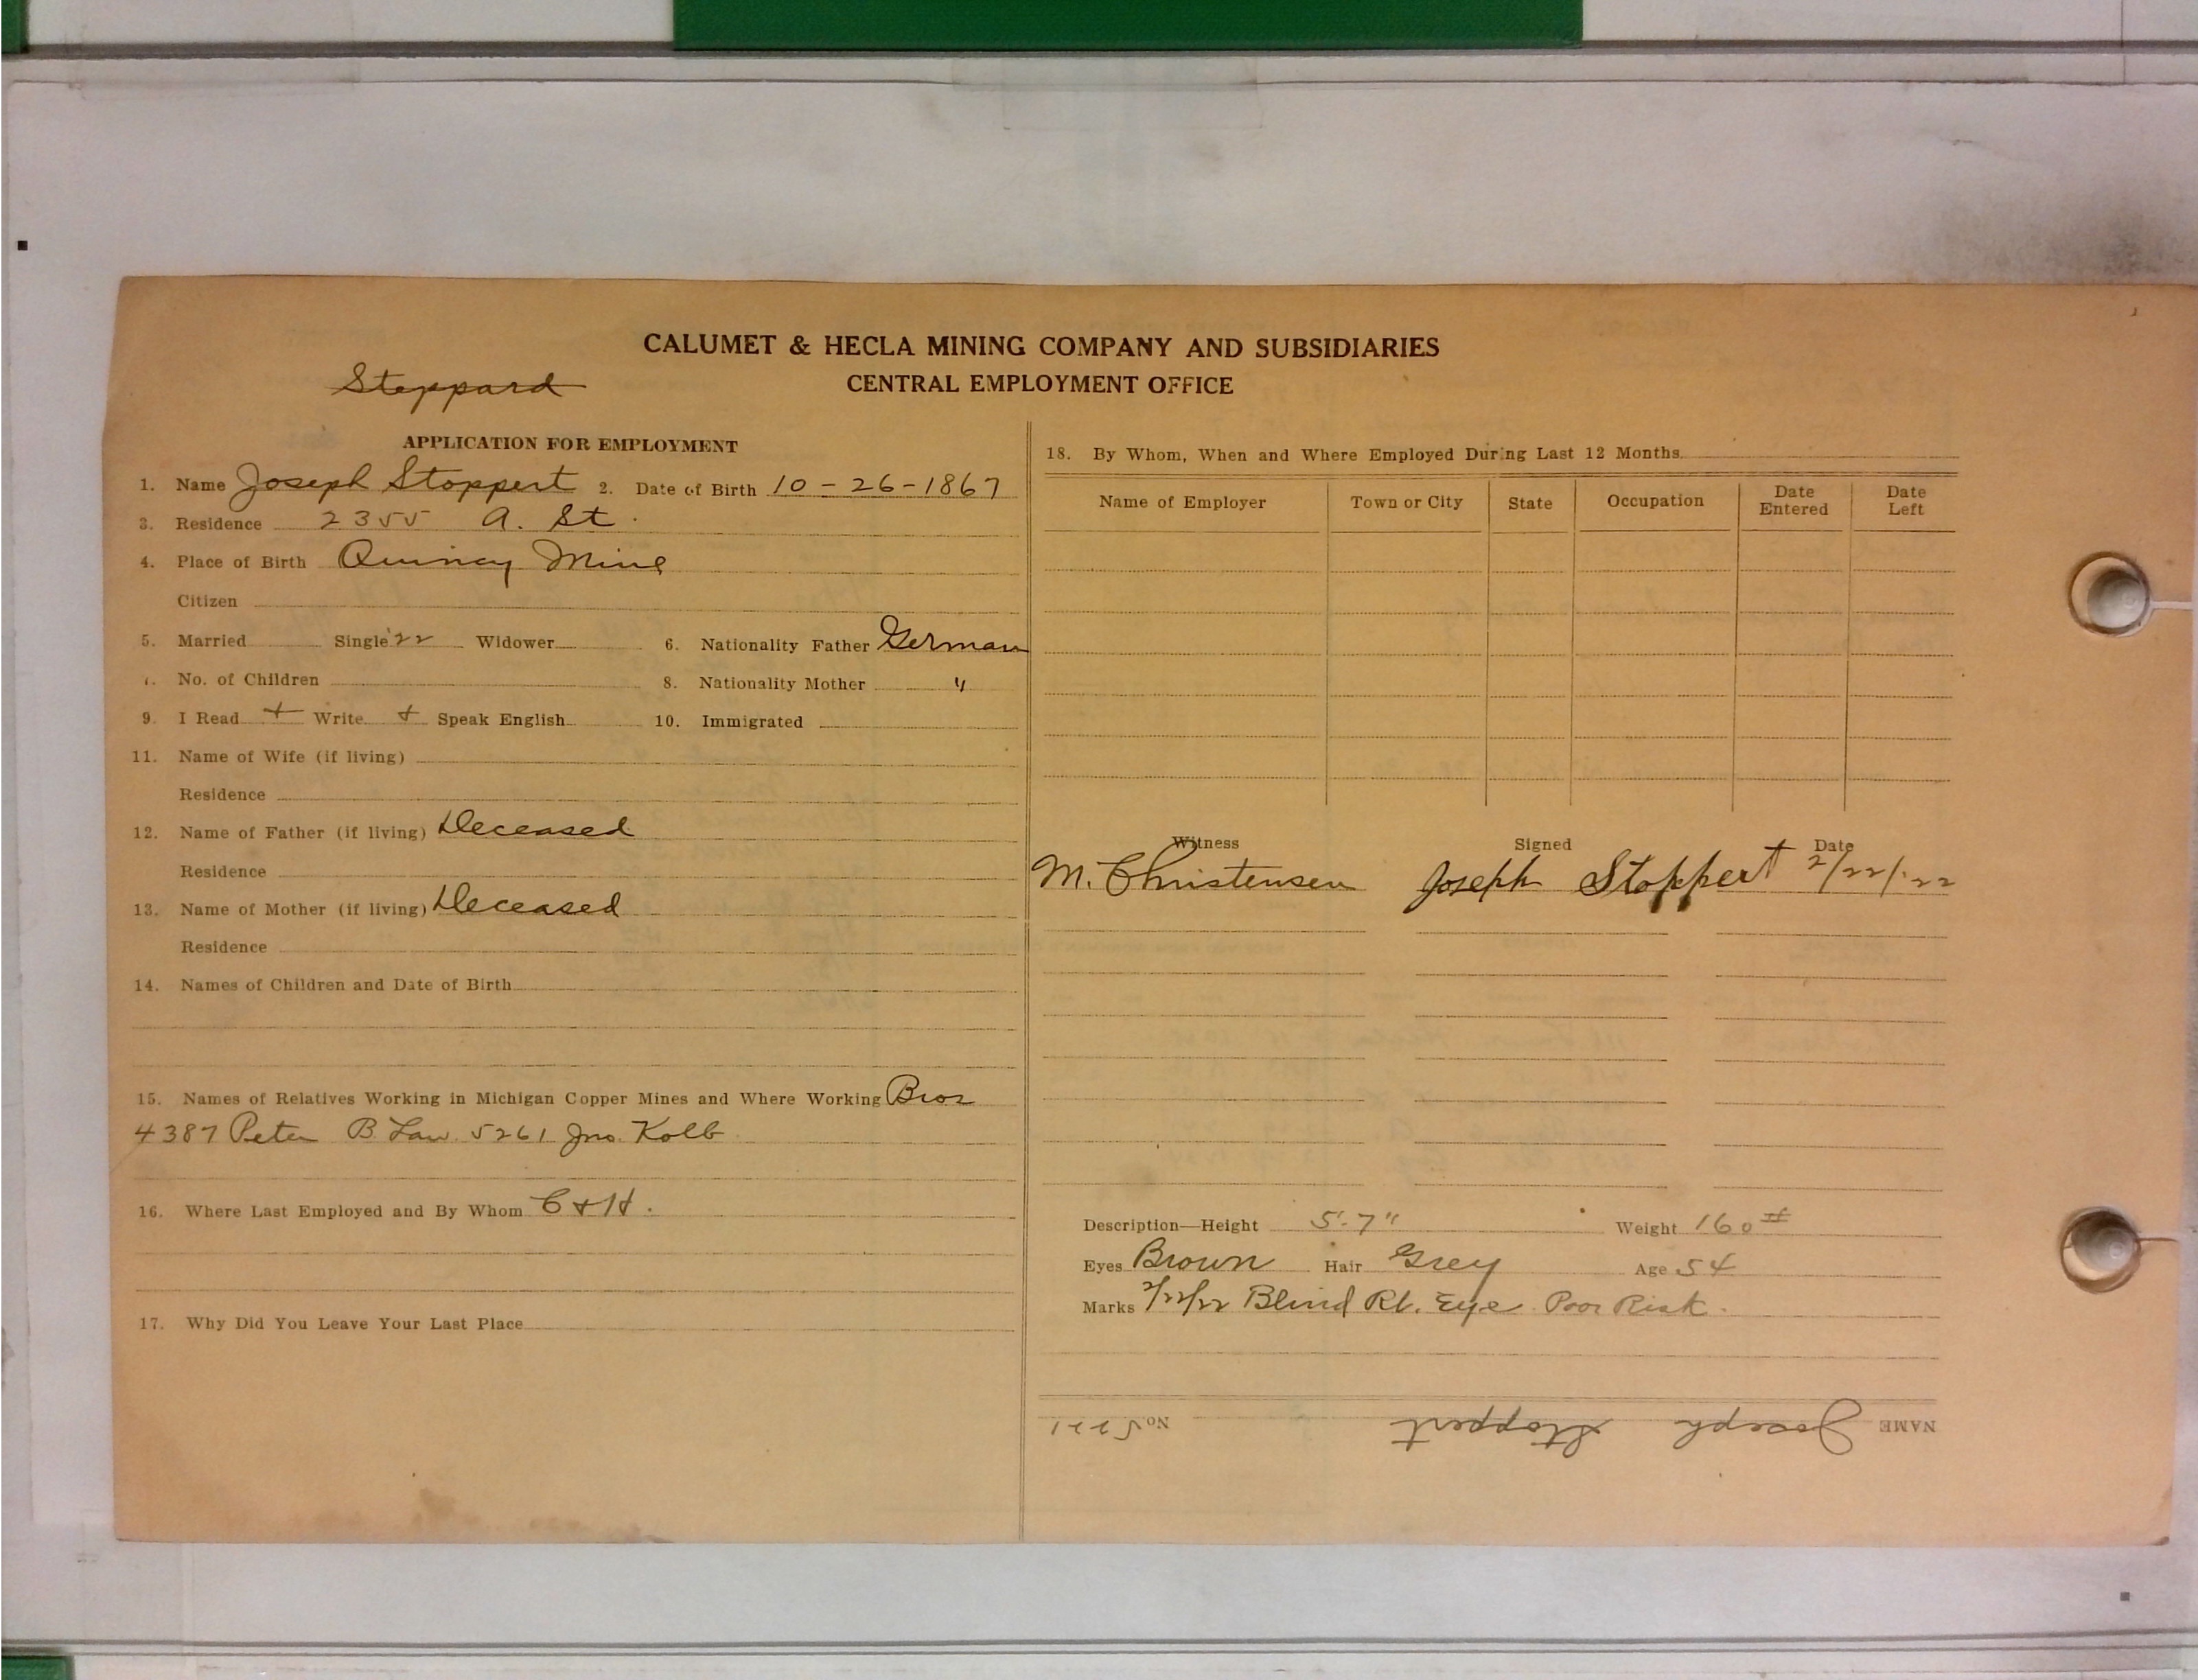 CALUMET & HECLA MINING COMPANY AND SUBSIDIARIES
CENTRAL EMPLOYMENT OFFICE
Steppard
APPLICATION FOR EMPLOYMENT
1. Name Joseph Stoppert 2. Date of Birth 10-26-1867
3. Residence 2355 A. St.
4. Place of Birth Quincy Mine
Citizen
5. Married Single '22 Widower 6. Nationality Father German
7. No. of Children 8. Nationality Mother "
9. I Read + Write + Speak English 10. Immigrated
11. Name of Wife (if living)
Residence
12. Name of Father (if living) Deceased
Residence
13. Name of Mother (if living) Deceased
Residence
14. Names of Children and Date of Birth
15. Names of Relatives Working in Michigan Copper Mines and Where Working Bros
4387 Peter B. Law. 5261 Jno. Kolb
16. Where Last Employed and By Whom C + H.
17. Why Did You Leave Your Last Place
18. By Whom, When and Where Employed During Last 12 Months
Name of Employer Town or City State Occupation Date Entered Date Left
Witness Signed Date
M. Christensen Joseph Stoppert 2/22/'22
Description—Height 5'-7" Weight 160#
Eyes Brown Hair Grey Age 54
Marks 2/22/22 Blind Rt. Eye Poor Risk.
NAME Joseph Stoppert No. 5221